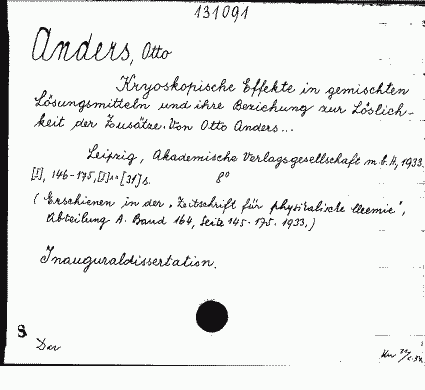 131091
Anders, Otto
Kryoskopische Effekte in gemischten
Lösungsmitteln und ihre Beziehung zur Löslich-
keit der Zusätze. Von Otto Anders...
Leipzig, Akademische Verlagsgesellschaft m.b.H, 1933.
[I], 146-175, [31] s. 8°
(Erschienen in der „Zeitschrift für physikalische Chemie",
Abteilung A. Band 164, Seite 145-175. 1933.)
Inauguraldissertation.
S